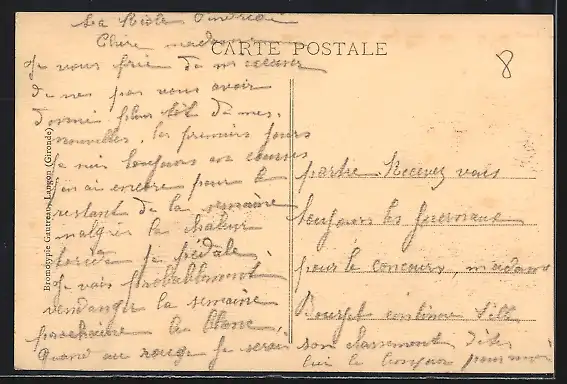 La Réole
Chère madame
CARTE POSTALE
Je vous prie de m'excuser
de ne pas vous avoir
donné plus tôt de mes
nouvelles, les premiers jours
je suis toujours en courses
j'en ai encore pour le
restant de la semaine
malgrés la chaleur
je pédale.
Je vais probablement
vendanger la semaine
prochaine le blanc.
Quand au rouge je serai
partie. Recevez vous
toujours les journaux
pour le concours, madame
Bourget continue
son classement
pour moi
Bromotypie Gautreau, Langon (Gironde)
8